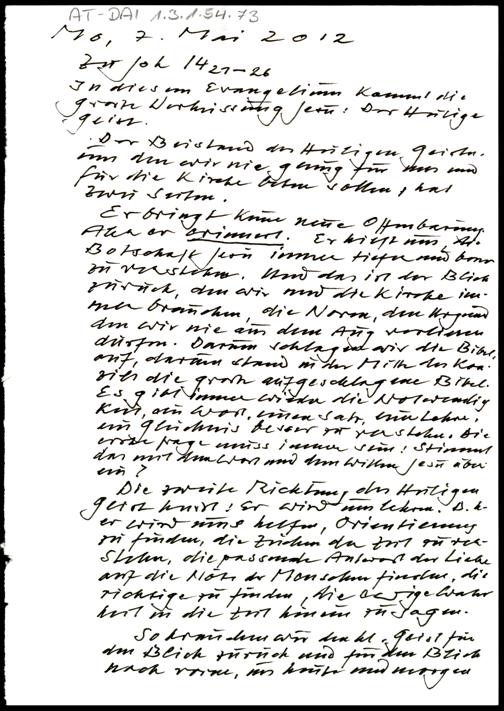 AT-DAI 1.3.1.54.73
Mo, 7. Mai 2012
Zu Joh 14 21-26
In diesem Evangelium kommt die
große Verheissung Jesu: Der Heilige
Geist.
Der Beistand des Heiligen Geistes,
um den wir nie genug für uns und
für die Kirche beten sollen, hat
zwei Seiten.
Er bringt keine neue Offenbarung.
Aber er erinnert. Er hilft uns, die
Botschaft Jesu immer tiefer und besser
zu verstehen. Und das ist der Blick
zurück, den wir und die Kirche im-
mer brauchen, die Norm, den Urgrund
den wir nie aus dem Aug verlieren
dürfen. Darum schlagen wir die Bibel
auf, darum stand in der Mitte des Kon-
zils die große aufgeschlagene Bibel.
Es gibt immer wieder die Notwendig
keit, ein Wort, einen Satz, eine Lehre,
ein Gleichnis besser zu verstehen. Die
erste Frage muss immer sein: Stimmt
das mit dem Wort und dem Willen Jesu über
ein?
Die zweite Richtung des Heiligen
Geist heisst: Er wird uns lehren. D.h.
er wird uns helfen, Orientierung
zu finden, die Zeichen der Zeit zu ver-
stehen, die passende Antwort der Liebe
auf die Nöte der Menschen finden, die
richtige zu finden, die ewige Wahr
heit in die Zeit hinein zu sagen.
So brauchen wir den hl. Geist für
den Blick zurück und für den Blick
nach vorne, ins heute und morgen